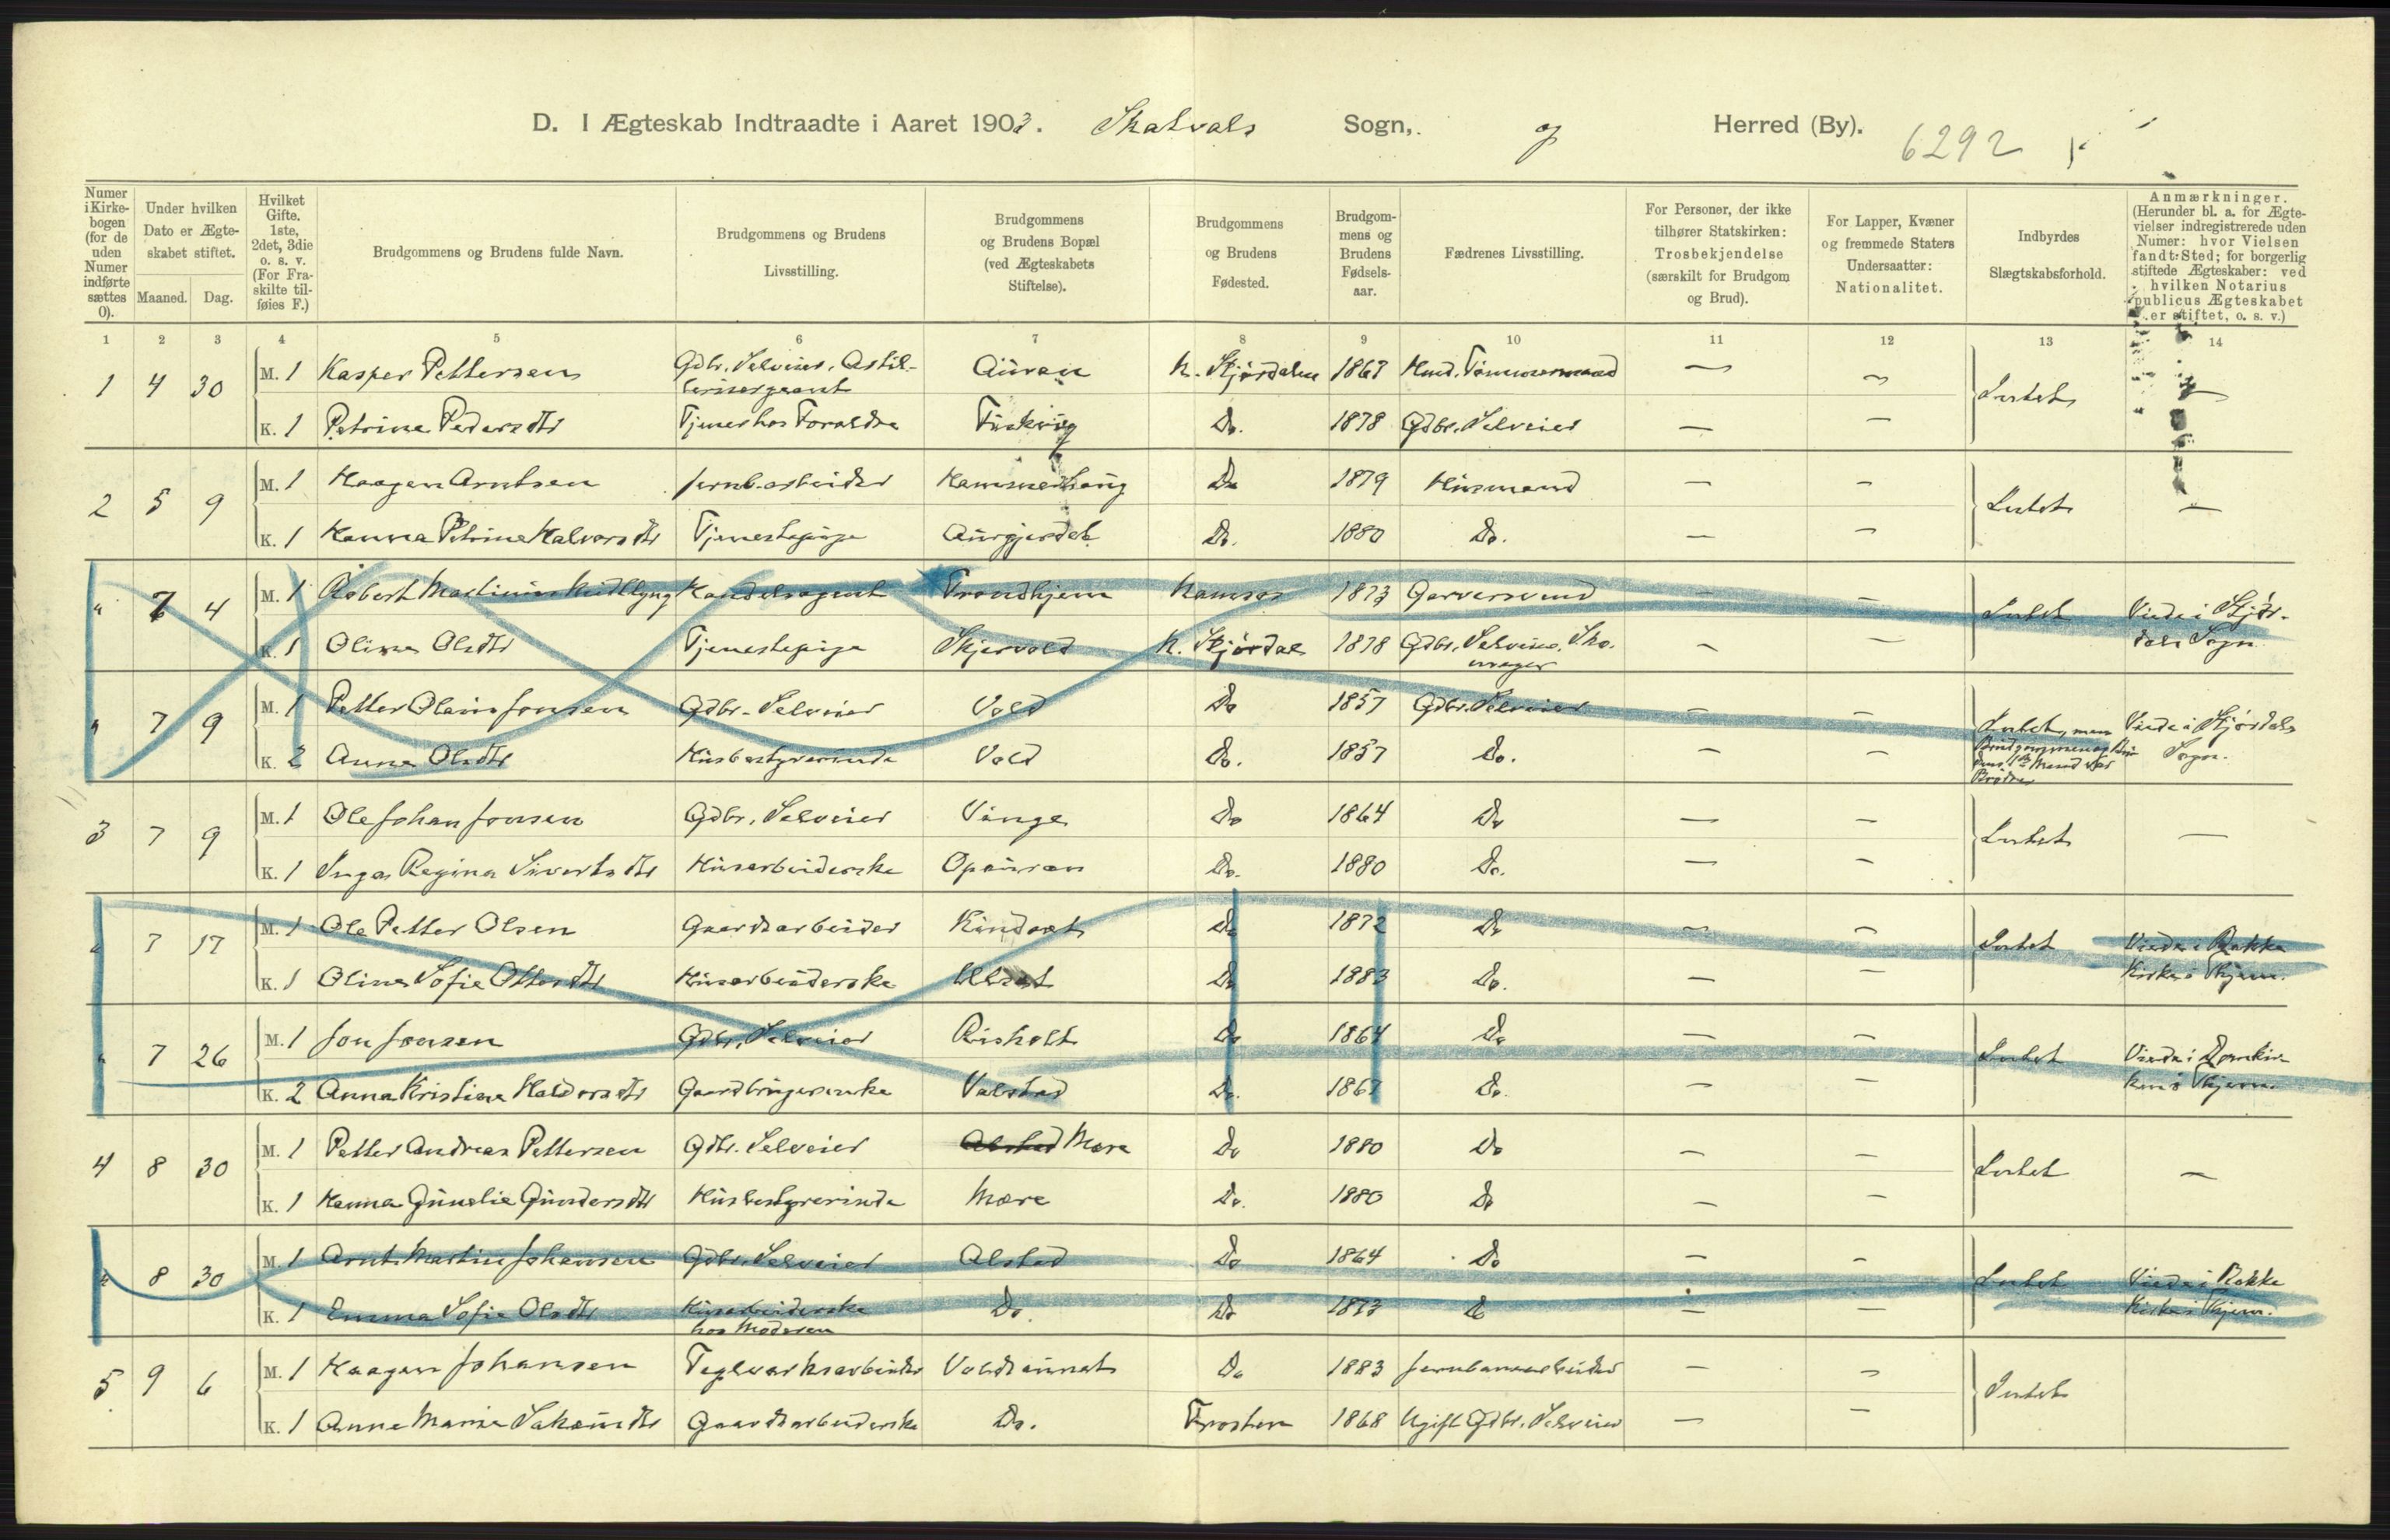 D. I Ægteskab Indtraadte i Aaret 1903. Skatvals Sogn, og Herred (By). 6292
Numer i Kirkebogen (for de uden Numer indførte sættes 0).
Under hvilken Dato er Ægteskabet stiftet.
Maaned. Dag.
Hvilket Gifte. 1ste, 2det, 3die o. s. v. (For Fraskilte tilføies F.)
Brudgommens og Brudens fulde Navn.
Brudgommens og Brudens Livsstilling.
Brudgommens og Brudens Bopæl (ved Ægteskabets Stiftelse).
Brudgommens og Brudens Fødested.
Brudgommens og Brudens Fødselsaar.
Fædrenes Livsstilling.
For Personer, der ikke tilhører Statskirken: Trosbekjendelse (særskilt for Brudgom og Brud).
For Lapper, Kvæner og fremmede Staters Undersaatter: Nationalitet.
Indbyrdes Slægtskabsforhold.
Anmærkninger. (Herunder bl. a. for Ægtevielser indregistrerede uden Numer: hvor Vielsen fandt Sted; for borgerlig stiftede Ægteskaber: ved hvilken Notarius publicus Ægteskabet er stiftet, o. s. v.)
1 2 3 4 5 6 7 8 9 10 11 12 13 14
1 4 30 M. 1 Kasper Pettersen Gdbr. Selveier, Artillerisergeant Auran N. Skjørdalen 1867 — — Intet —
K. 1 Petrine Pedersdtr Tjener hos Forældre Fiskvig Do. 1878 Gdbr. Selveier — —
2 5 9 M. 1 Haagen Arntsen Jernb.arbeider Hammerhaug Do 1879 Husmand — — Intet —
K. 1 Hanna Petrine Halvorsdtr Tjenestepige Aurgjerdet Do. 1880 Do. — —
" 7 4 M. 1 Robert Martinius Midtlyng Handelsagent Trondhjem Namsos 1873 Garversvend — — Intet Viede i Skjørdals Sogn
K. 1 Oline Olsdtr Tjenestepige Skjervold N. Skjørdal 1878 Gdbr. Selveier. Skomager — —
" 7 9 M. 1 Petter Olaus Jonsen Gdbr. Selveier Vold Do 1857 Gdbr. Selveier — — Intet, men Brudgommen og Brudens 1ste Mand var Brødre Viede i Skjørdals Sogn.
K. 2 Anna Olsdtr Husbestyrerinde Vold Do. 1857 Do. — —
3 7 9 M. 1 Ole Johan Jonsen Gdbr. Selveier Vinge Do 1864 Do — — Intet —
K. 1 Inga Regina Sivertsdtr Husarbeiderske Opauran Do. 1880 Do. — —
" 7 17 M. 1 Ole Petter Olsen Gaardsarbeider Kindset Do 1872 Do — — Intet Viede i Bakke Kirke i Thjem.
K. 1 Oline Sofie Ottersdtr Husarbeiderske Do 1883 Do. — —
" 7 26 M. 1 Jon Jonsen Gdbr. Selveier Risholt Do 1864 Do — — Intet Viede i Domkirken i Thjem.
K. 2 Anna Kristine Haldorsdtr Gaardbrugerenke Valstad Do. 1867 Do. — —
4 8 30 M. 1 Petter Andreas Pettersen Gdbr. Selveier Alstad Mære Do 1880 Do — — Intet —
K. 1 Hanna Gunelie Gundersdtr Husbestyrerinde Mære Do. 1880 Do — —
" 8 30 M. 1 Arnt Martin Johansen Gdbr. Selveier Alstad Do 1864 Do — — Intet Viede i Bakke Kirke i Thjem.
K. 1 Emma Sofie Olsdtr Husarbeiderske hos Moderen Do. Do 1873 Do — —
5 9 6 M. 1 Haagen Johansen Teglværksarbeider Do 1883 Jernbanearbeider — — Intet
K. 1 Anne Marie Gaardsarbeiderske Do. Frosten 1868 Ugift Gdbr. Selveier — —